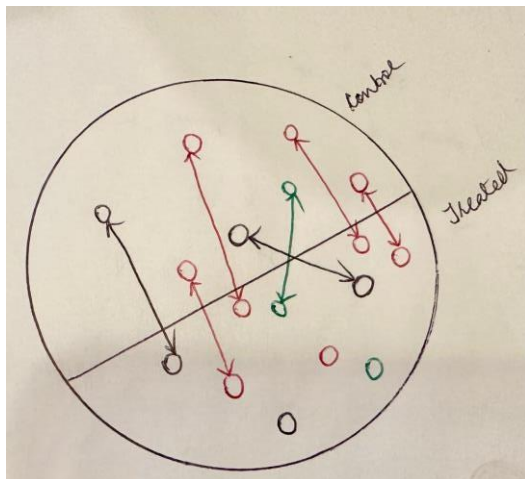 Control
Treated